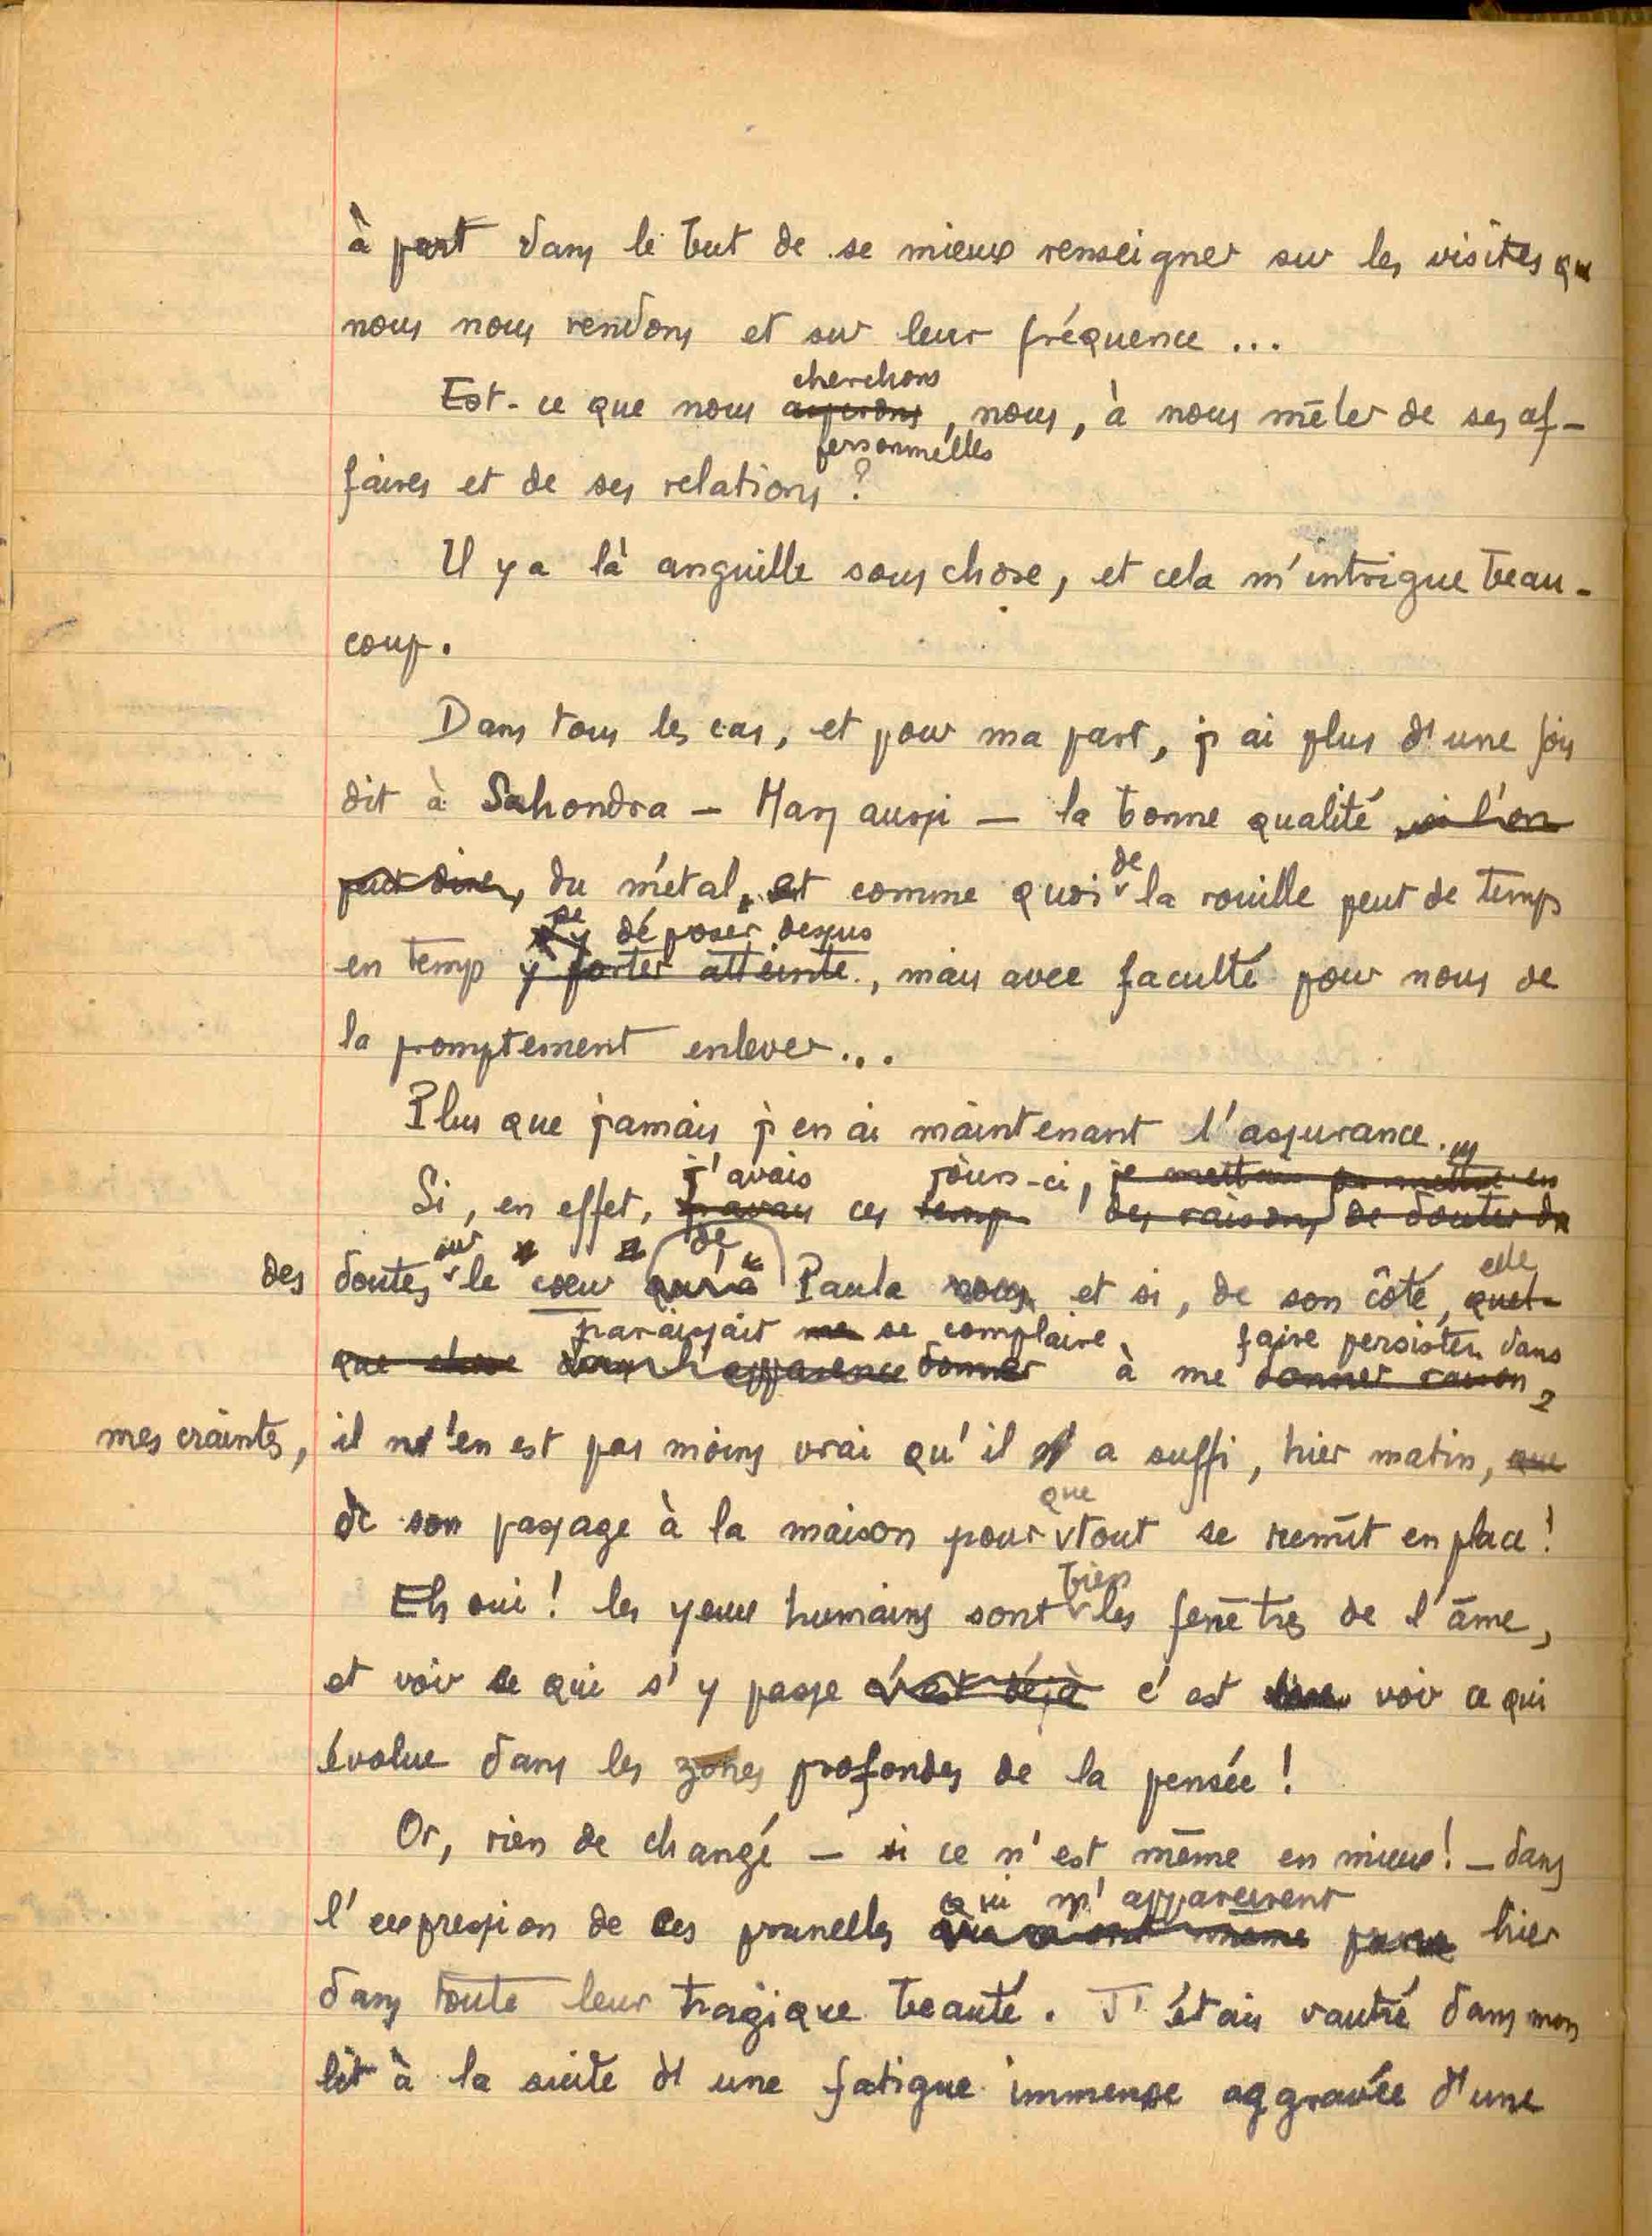 à part dans le but de se mieux renseigner sur les visites que
nous nous rendons et sur leur fréquence ...
cherchons
Est-ce que nous , nous, à nous mêler de ses af-
personnelles
faires et de ses relations ?
Il y a là anguille sous chose, et cela m'intrigue beau-
coup.
Dans tous les cas, et pour ma part, j'ai plus d'une fois
dit à Sahondra — Mary aussi — la bonne qualité, si l'on
peut dire, du métal, et comme quoi la rouille peut de temps
de
se y déposer dessus
en temps y porter atteinte, mais avec faculté pour nous de
la promptement enlever...
Plus que jamais j'en ai maintenant l'assurance...
j'avais jours-ci, je mettais en
Si, en effet, j'avais ces temps des raisons de douter de
sur de elle
des doutes le coeur qu'a Paula et si, de son côté, quel-
paraissait me se complaire faire persister dans
que chose dans l'apparence donner à me donner raison,
mes craintes, il n'en est pas moins vrai qu'il a suffi, hier matin, que
que
de son passage à la maison pour tout se remît en place !
bien
Eh oui ! les yeux humains sont les fenêtres de l'âme,
et voir ce qui s'y passe c'est déjà c'est voir ce qui
évolue dans les zones profondes de la pensée !
Or, rien de changé — si ce n'est même en mieux ! — dans
qui m'apparurent
l'expression de ces prunelles qui m'ont même hier
dans toute leur tragique beauté. J'étais vautré dans mon
lit à la suite d'une fatigue immense aggravée d'une